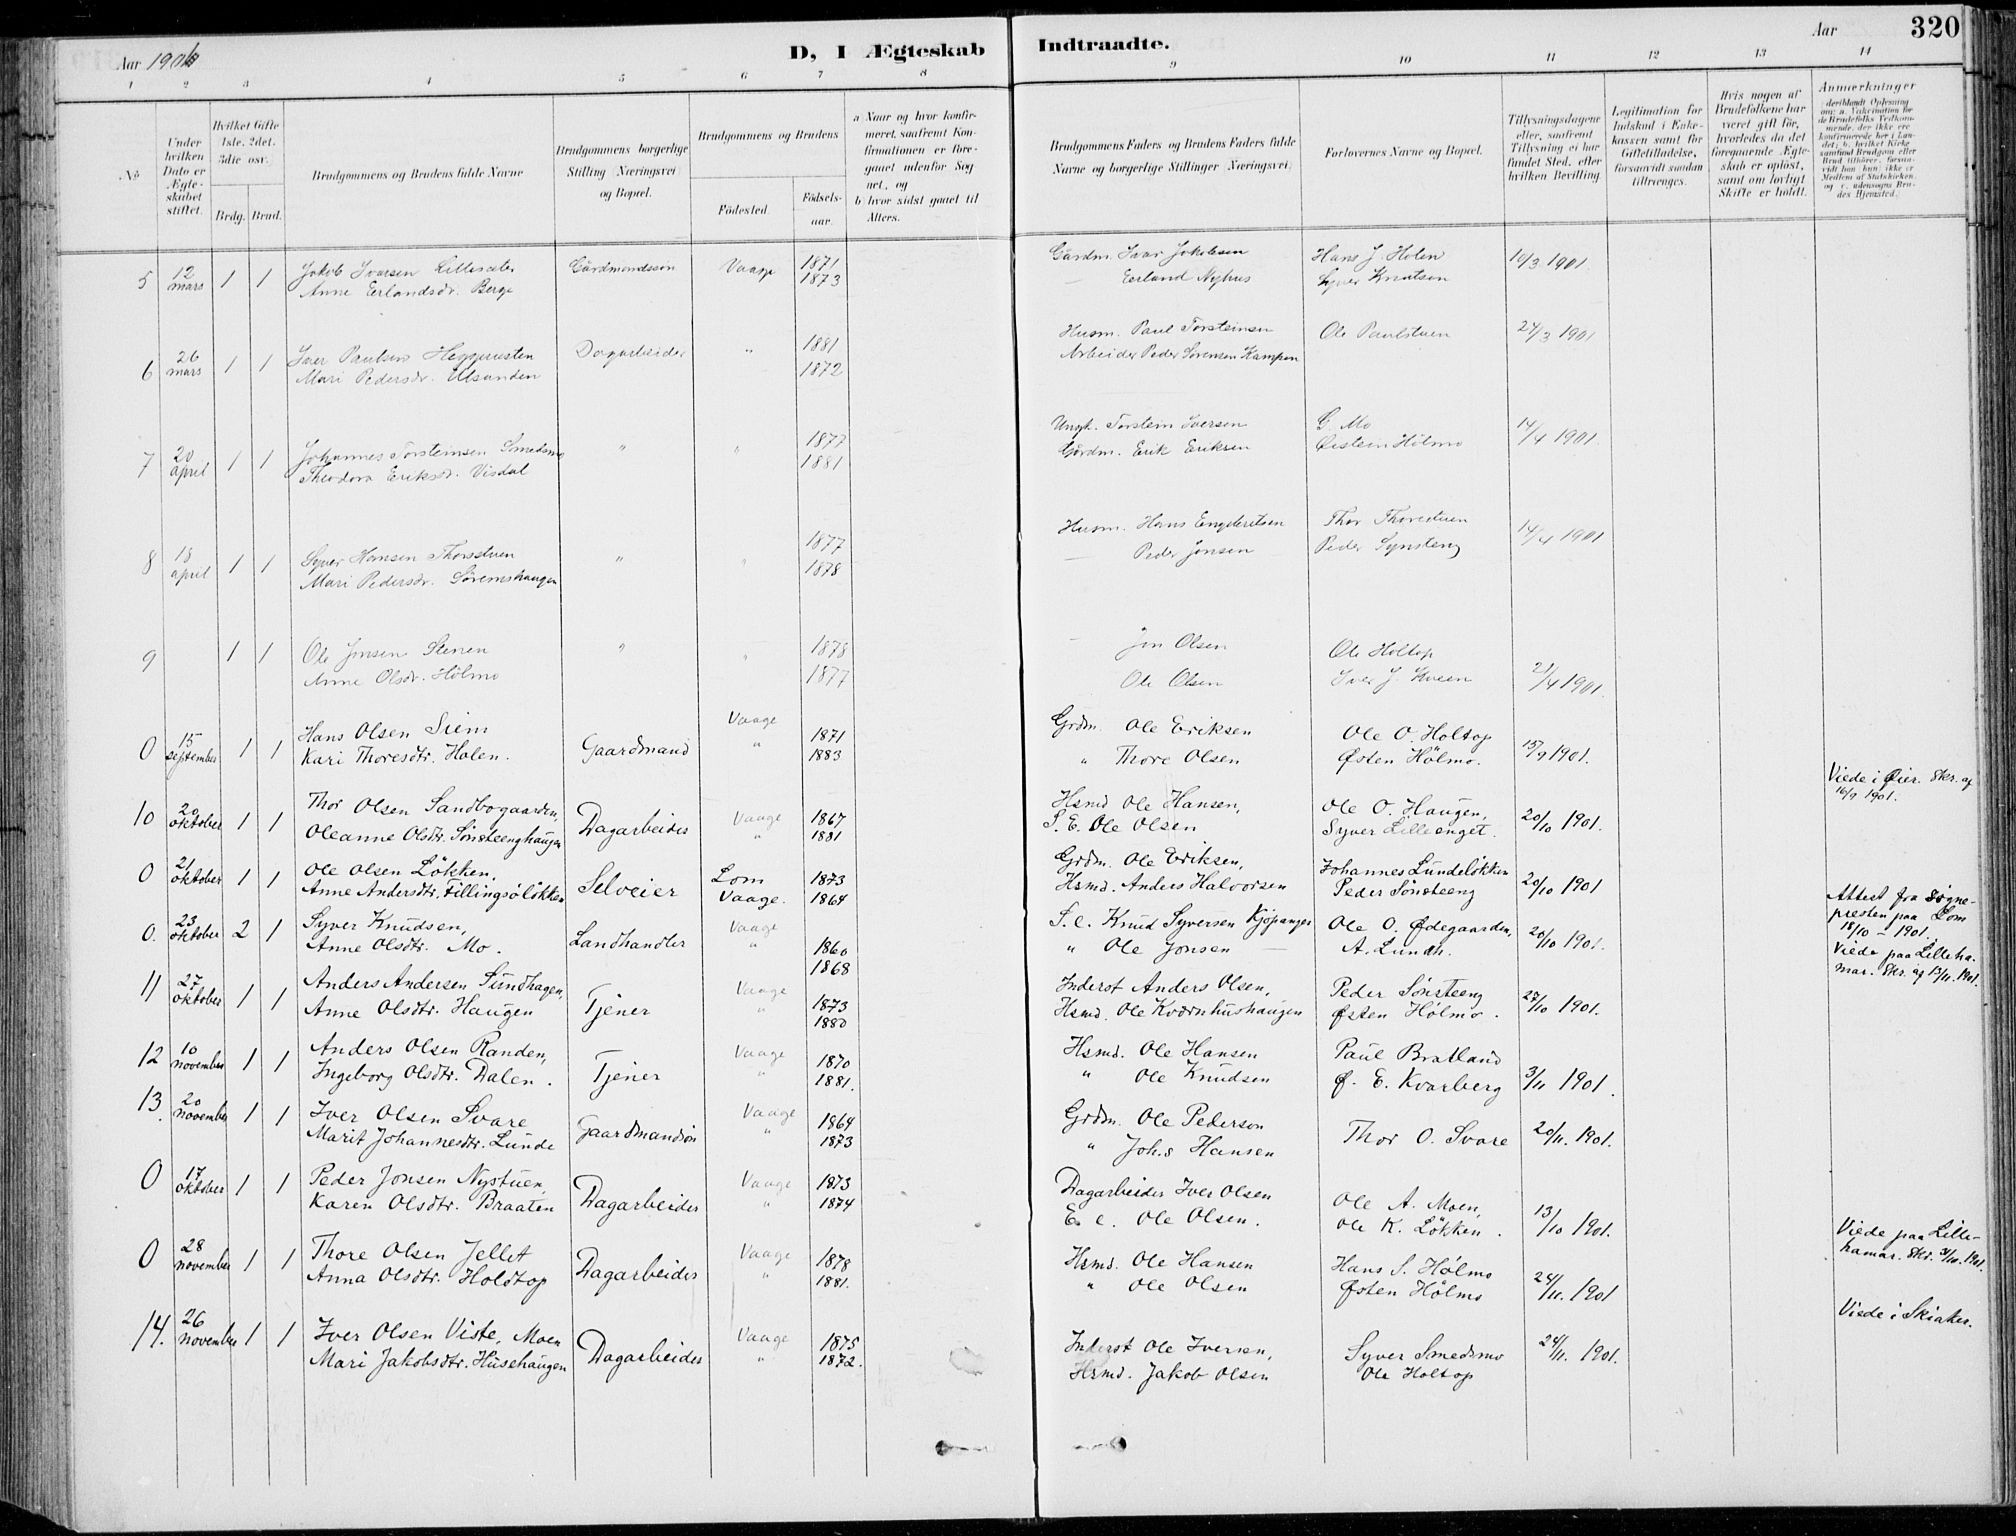 Aar 1901
D, I Ægteskab Indtraadte.
Aar
320
1 2 3 4 5 6 7 8 9 10 11 12 13 14
No
Under hvilken Dato er Ægteskabet stiftet.
Hvilket Gifte 1ste. 2det. 3die osv.
Brdg. Brud.
Brudgommens og Brudens fulde Navne
Brudgommens borgerlige Stilling Næringsvei og Bopæl.
Brudgommens og Brudens
Födested.
Födselsaar.
a Naar og hvor konfirmeret, saafremt Konfirmationen er foregaaet udenfor Sognet, og
b hvor sidst gaaet til Alters.
Brudgommens Faders og Brudens Faders fulde Navne og borgerlige Stillinger Næringsvei.
Forlovernes Navne og Bopæl.
Tillysningsdagene eller, saafremt Tillysning ei har fundet Sted, efter hvilken Bevilling
Legitimation for Indskud i Enkekassen samt for Giftetilladelse, forsaavidt saadan tiltrænges.
Hvis nogen af Brudefolkene har været gift för, hvorledes da det foregaaende Ægteskab er oplöst, samt om lovligt Skifte er holdt.
Anmærkninger
5 12 mars 1 1 Jakob Iversen Lillesæter Gårdmandssön Vaage 1871 Gårdm. Ivar Jakobsen Hans J. Holen 10/3 1901.
Anne Erlandsdr. Berge 1873 — Erland Nyhus Syver Knutsen
6 26 mars 1 1 Iver Paulsen Heggerusten Dagarbeider " 1881 Husm. Paul Torsteinsen Ole Paulstuen 24/3 1901
Mari Pedersdr. Ulsanden 1872 Arbeider Peder Sørensen Kampen
7 20 april 1 1 Johannes Torsteinsen Smedsmo " " 1877 Ungk. Torstein Iversen G. Mo 14/4 1901.
Theodora Eriksdr. Visdal 1881 Gårdm. Erik Eriksen Øistein Hölmo
8 18 april 1 1 Syver Hansen Thorsstuen " " 1877 Husm. Hans Engebretsen Thor Thorsstuen 14/4 1901
Mari Pedersdr. Söremshaugen 1878 — Peder Jonsen Peder Synsteng
9 1 1 Ole Jonsen Stenen " " 1878 — Jon Olsen Ole Holtop
Anne Olsdr. Hölmo 1877 Ole Olsen Iver J. Kveen 21/4 1901.
0 15 september 1 1 Hans Olsen Siem Gaardmand Vaage 1871 Grdm. Ole Eriksen Ole O. Holtop 15/9 1901.
Kari Thoresdtr. Holen. " 1883 " Thore Olsen Østen Hölmo.
Viede i Øier. Skr. af 16/9 1901.
10 20 oktober 1 1 Thor Olsen Sandbogaarden, Dagarbeider Vaage 1867 Hsmd Ole Hansen, Ole O. Haugen, 20/10 1901.
Oleanne Olsdtr. Sönsteenghaugen " 1881 S. E. Ole Olsen Syver Lilleenget.
0 21 oktober 1 1 Ole Olsen Lökken, Selveier Lom 1873 Grdm. Ole Eriksen, Johannes Lundelökken 20/10 1901
Anne Andersdtr. Tillingsölökken Vaage. 1864 Hsmd. Anders Halvorsen Peder Sönsteeng
Attest fra Sognepresten paa Lom 18/10 – 1901.
0. 23 oktober 2 1 Syver Knudsen, Landhandler Vaage 1860 S. e. Knud Syversen Kjöpanger Ole O. Ødegaarden, 20/10 1901.
Anne Olsdtr. Mo. " 1868 " Ole Jonsen — A. Lundh.
Viede paa Lillehamar. Skr. af 13/11. 1901.
11 27 oktober 1 1 Anders Andersen Sundhagen, Tjener Vaage 1873 Inderst Anders Olsen, Peder Sönsteeng 27/10 1901.
Anne Olsdtr. Haugen " 1880 Hsmd. Ole Kværnhushaugen Østen Hölmo.
12 10 november 1 1 Anders Olsen Randen, Tjener Vaage 1870 Hsmd. Ole Hansen Paul Bratland 3/11 1901.
Ingeborg Olsdtr. Dalen. " 1881. " Ole Knudsen Ø. E. Kvarberg
13. 20 november 1 1 Iver Olsen Svare Gaardmandsön Vaage 1864 Grdm. Ole Pederson Thor O. Svare 20/11. 1901.
Marit Johannesdtr. Lunde " 1873 " Joh.s Hansen
0 17 oktober 1 1 Peder Jonsen Nystuen, Dagarbeider Vaage 1873 Dagarbeider Iver Olsen Ole A. Moen, 13/10 1901.
Karen Olsdtr. Braaten " 1874 E. e. Ole Olsen. Ole K. Lökken.
Viede paa Lillehamar. Skr. 31/10. 1901.
0 28 november 1 1 Thore Olsen Jellet Dagarbeider Vaage 1878 Hsmd. Ole Hansen Hans S. Hölmo 24/11. 1901
Anna Olsdtr. Holdtop " 1881. " Ole Olsen Østen Hölmo
Viede i Skiaker.
14. 26 november 1 1 Iver Olsen Viste, Moen Dagarbeider Vaage 1875 Inderst Ole Iversen, Syver Smedsmo 24/11. 1901.
Mari Jakobsdtr. Husehaugen " 1872. Hsmd. Jakob Olsen Ole Holtop